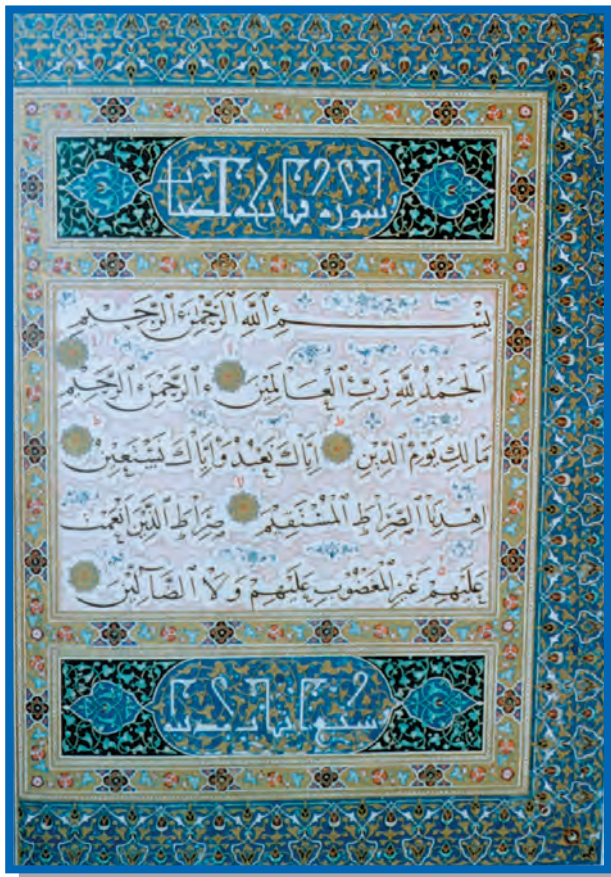 سورة فاتحة الكتاب
بِسْمِ ٱللَّهِ ٱلرَّحْمٰنِ ٱلرَّحِيمِ
اَلْحَمْدُ لِلَّهِ رَبِّ ٱلْعَالَمِينَ ٱلرَّحْمٰنِ ٱلرَّحِيمِ
مَالِكِ يَوْمِ ٱلدِّينِ اِيَّاكَ نَعْبُدُ وَاِيَّاكَ نَسْتَعِينُ
اِهْدِنَا ٱلصِّرَاطَ ٱلْمُسْتَقِيمَ صِرَاطَ ٱلَّذِينَ اَنْعَمْتَ
عَلَيْهِمْ غَيْرِ ٱلْمَغْضُوبِ عَلَيْهِمْ وَلَا ٱلضَّآلِّينَ
سبع آيات